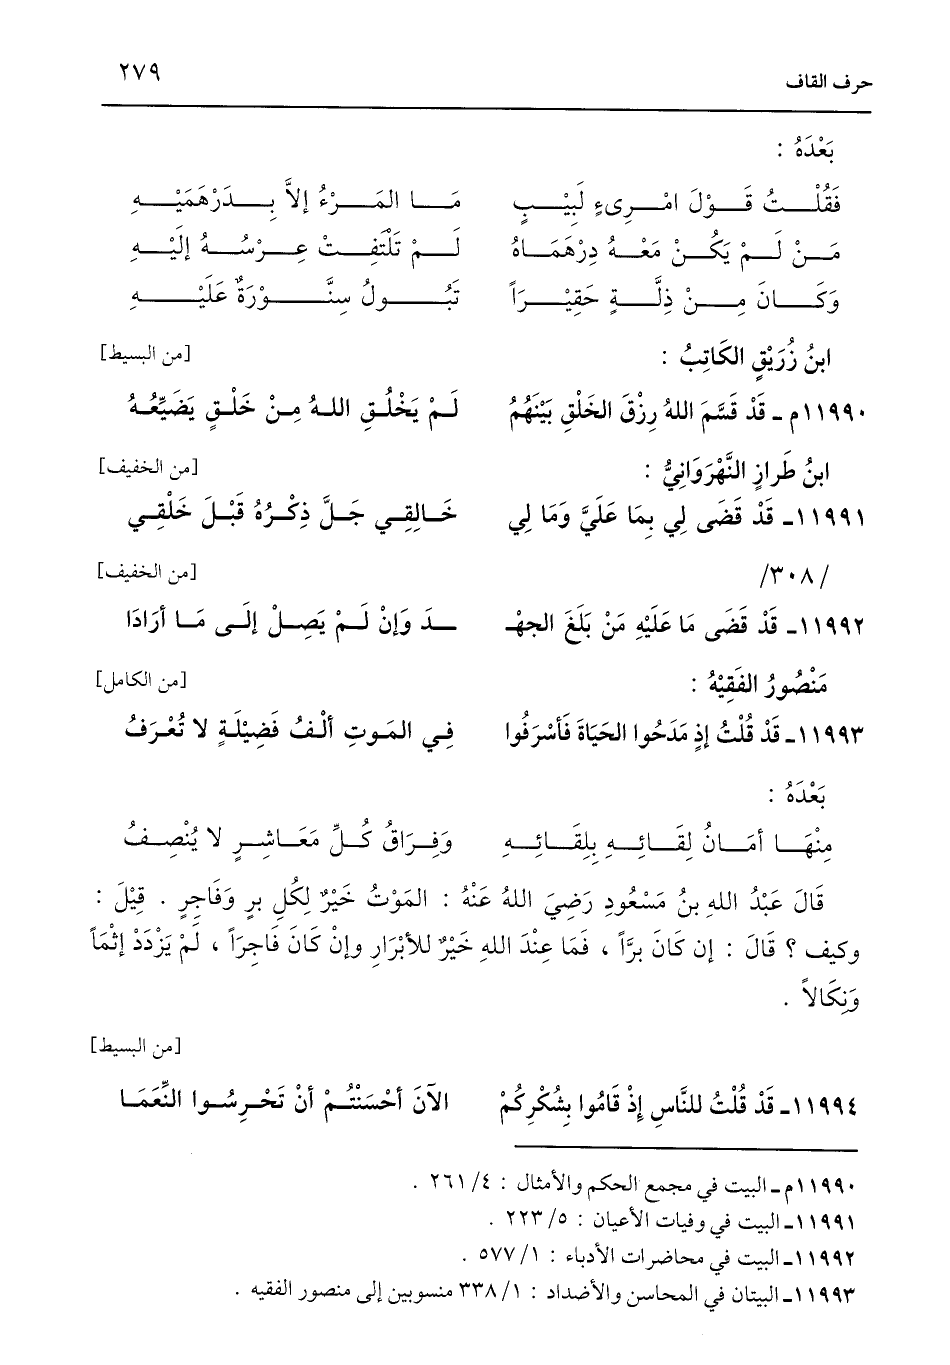 حرف القاف ٢٧٩
بَعْدَهُ :
فَقُلْتُ قَوْلَ امْرِىءٍ لَبِيْبٍ مَا المَرْءُ إلاَّ بِدَرْهَمَيْهِ
مَنْ لَمْ يَكُنْ مَعْهُ دِرْهَمَاهُ لَمْ تَلْتَفِتْ عِرْسُهُ إلَيْهِ
وَكَانَ مِنْ ذِلَّةٍ حَقِيْرَاً تَبُولُ سِنَّوْرَةٌ عَلَيْهِ
ابنُ زُرَيْقٍ الكَاتِبُ : [من البسيط]
١١٩٩٠م ـ قَدْ قَسَّمَ اللهُ رِزْقَ الخَلْقِ بَيْنَهُمُ لَمْ يَخْلُقِ اللهُ مِنْ خَلْقٍ يَضَيِّعُهُ
ابنُ طَرازٍ النَّهْرَوَانِيُّ : [من الخفيف]
١١٩٩١ـ قَدْ قَضَى لِي بِمَا عَلَيَّ وَمَا لِي خَالِقِي جَلَّ ذِكْرُهُ قَبْلَ خَلْقِي
/٣٠٨/ [من الخفيف]
١١٩٩٢ـ قَدْ قَضَى مَا عَلَيْهِ مَنْ بَلَغَ الجهْـ ـدَ وَإنْ لَمْ يَصِلْ إلَى مَا أرَادَا
مَنْصُورُ الفَقِيْهُ : [من الكامل]
١١٩٩٣ـ قَدْ قُلْتُ إذِ مَدَحُوا الحَيَاةَ فَأسْرَفُوا فِي المَوتِ ألْفُ فَضِيْلَةٍ لا تُعْرَفُ
بَعْدَهُ :
مِنْهَا أمَانُ لِقَائِهِ بِلِقَائِهِ وَفِرَاقُ كُلِّ مَعَاشِرٍ لا يُنْصِفُ
قَالَ عَبْدُ اللهِ بنُ مَسْعُودِ رَضِيَ اللهُ عَنْهُ : المَوْتُ خَيْرٌ لِكُلِ برٍ وَفَاجِرٍ . قِيْلَ :
وكيف ؟ قَالَ : إن كَانَ برَّاً ، فَمَا عِنْدَ اللهِ خَيْرٌ للأبْرَارِ وإنْ كَانَ فَاجِرَاً ، لَمْ يَزْدَدْ إثْمَاً
وَنِكَالاً .
[من البسيط]
١١٩٩٤ـ قَدْ قُلْتُ للنَّاسِ إذْ قَامُوا بِشُكْرِكُمْ الآنَ أحْسَنْتُمْ أنْ تَحْرِسُوا النِّعَمَا
١١٩٩٠م ـ البيت في مجمع الحكم والأمثال : ٤/ ٢٦١ .
١١٩٩١ـ البيت في وفيات الأعيان : ٥/ ٢٢٣ .
١١٩٩٢ـ البيت في محاضرات الأدباء : ١/ ٥٧٧ .
١١٩٩٣ـ البيتان في المحاسن والأضداد : ١/ ٣٣٨ منسوبين إلى منصور الفقيه .